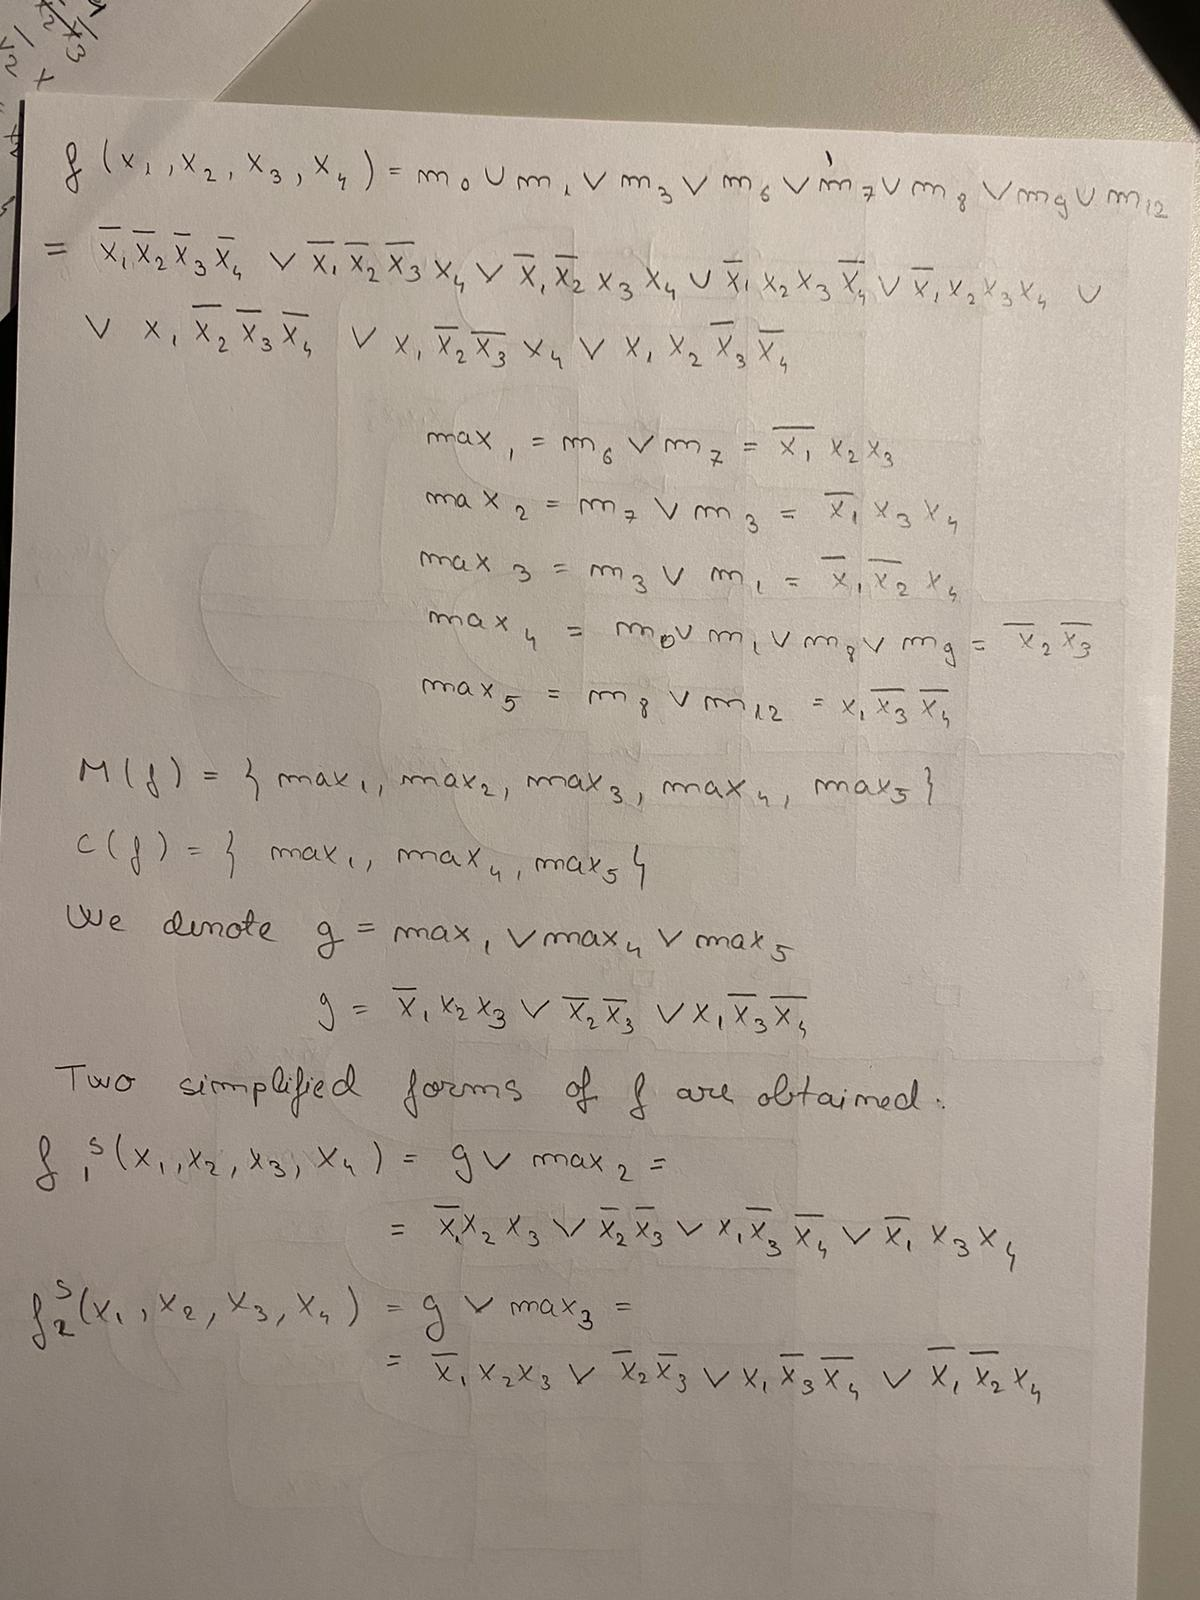 f(x₁, x₂, x₃, x₄) = m₀ ∨ m₁ ∨ m₃ ∨ m₆ ∨ m₇ ∨ m₈ ∨ m₉ ∨ m₁₂
= x̅₁x̅₂x̅₃x̅₄ ∨ x̅₁x̅₂x̅₃x₄ ∨ x̅₁x̅₂x₃x₄ ∨ x̅₁x₂x₃x̅₄ ∨ x̅₁x₂x₃x₄ ∨
∨ x₁x̅₂x̅₃x̅₄ ∨ x₁x̅₂x̅₃x₄ ∨ x₁x₂x̅₃x̅₄
max₁ = m₆ ∨ m₇ = x̅₁x₂x₃
max₂ = m₇ ∨ m₃ = x̅₁x₃x₄
max₃ = m₃ ∨ m₁ = x̅₁x̅₂x₄
max₄ = m₀ ∨ m₁ ∨ m₈ ∨ m₉ = x̅₂x̅₃
max₅ = m₈ ∨ m₁₂ = x₁x̅₃x̅₄
M(f) = { max₁, max₂, max₃, max₄, max₅ }
C(f) = { max₁, max₄, max₅ }
We denote g = max₁ ∨ max₄ ∨ max₅
g = x̅₁x₂x₃ ∨ x̅₂x̅₃ ∨ x₁x̅₃x̅₄
Two simplified forms of f are obtained.
f₁ˢ(x₁, x₂, x₃, x₄) = g ∨ max₂ =
= x̅₁x₂x₃ ∨ x̅₂x̅₃ ∨ x₁x̅₃x̅₄ ∨ x̅₁x₃x₄
f₂ˢ(x₁, x₂, x₃, x₄) = g ∨ max₃ =
= x̅₁x₂x₃ ∨ x̅₂x̅₃ ∨ x₁x̅₃x̅₄ ∨ x̅₁x̅₂x₄